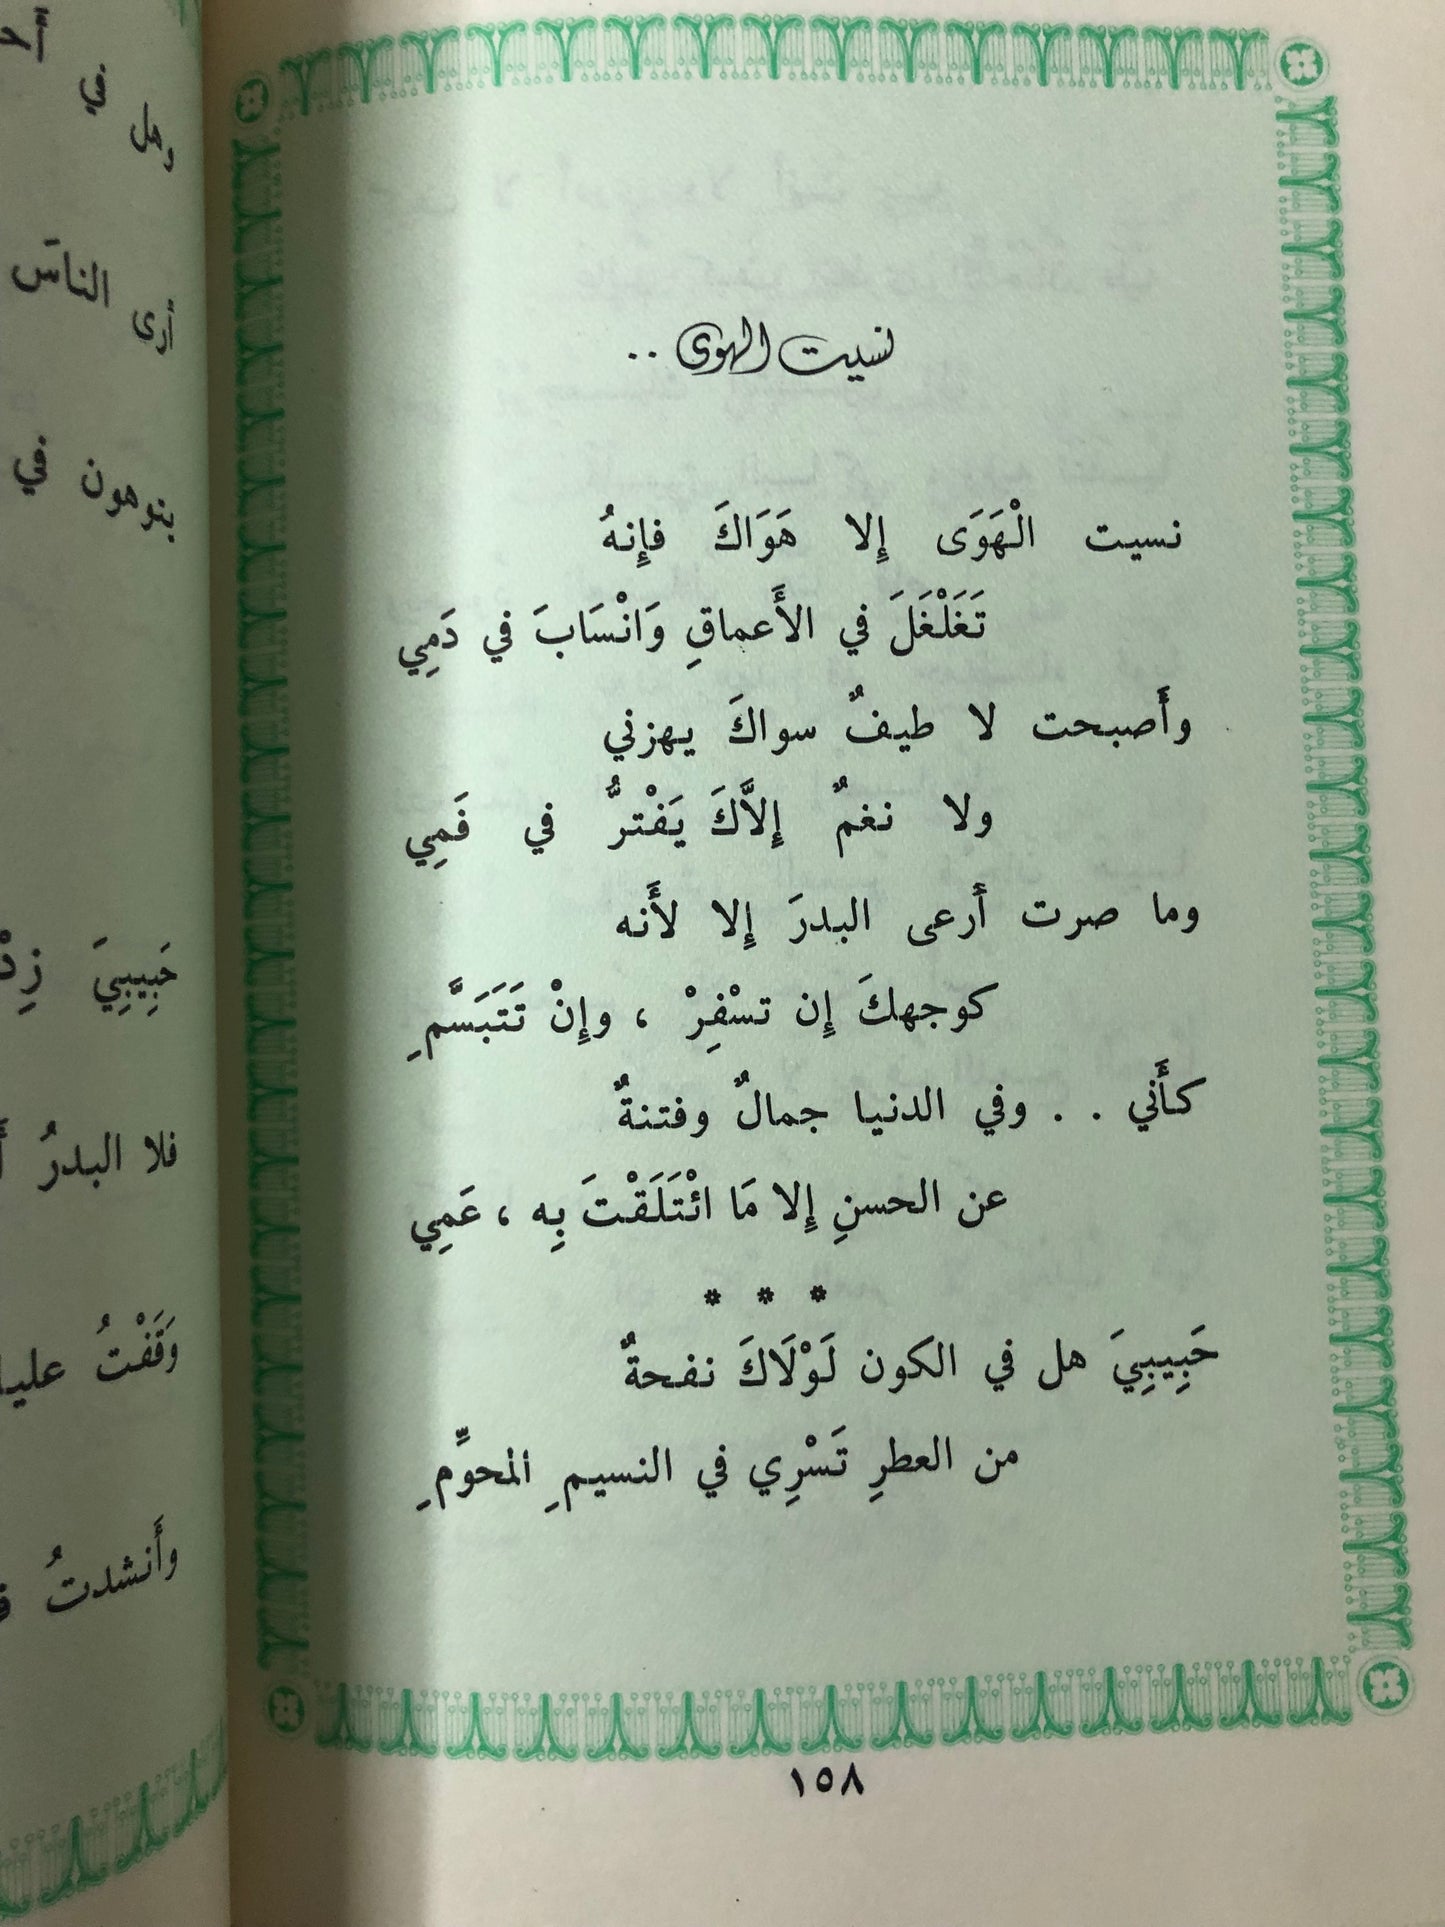 نسيت الهوى ..
نسيت الْهَوَى إِلا هَوَاكَ فإِنهُ
تَغَلْغَلَ في الأَعماقِ وَانْسَابَ في دَمِي
وأَصبحت لا طيفٌ سواكَ يهزني
ولا نغمٌ إِلاَّكَ يَفْترُّ في فَمِي
وما صرت أَرعى البدرَ إِلا لأَنه
كوجهكَ إِن تسْفِرْ ، وإِنْ تَتَبَسَّمِ
كأَني . . وفي الدنيا جمالٌ وفتنةٌ
عن الحسنِ إِلا مَا ائْتَلَقْتَ بِه ، عَمِي
* * *
حَبِيبِيَ هل في الكون لَوْلَاكَ نفحةٌ
من العطرِ تَسْرِي في النسيمِ المحوِّمِ
١٥٨
وهل في
أرى الناسَ
يتوهون في
حَبِيبِيَ
فلا البدرُ
وَقَفْتُ
وأَنشدتُ